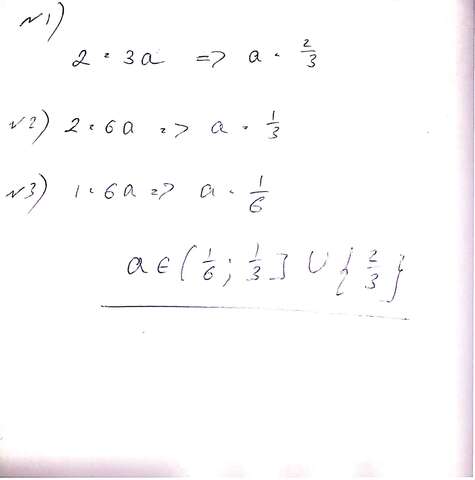 №1)
2 = 3a => a = 2/3
№2) 2 = 6a => a = 1/3
№3) 1 = 6a => a = 1/6
a ∈ (1/6; 1/3] ∪ {2/3}